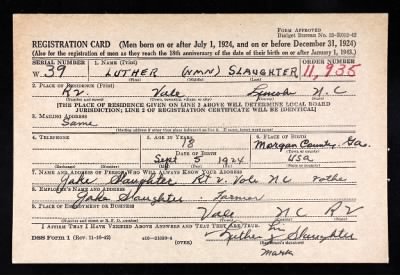 FORM APPROVED
REGISTRATION CARD (Men born on or after July 1, 1924, and on or before December 31, 1924)
(Also for the registration of men as they reach the 18th anniversary of the date of their birth on or after January 1, 1943.)
SERIAL NUMBER 1. NAME (Print) ORDER NUMBER
W. 39 LUTHER (NMN) SLAUGHTER 11,935
(First) (Middle) (Last)
2. PLACE OF RESIDENCE (Print)
R2. Vale Lincoln N.C
(Number and street) (Town, township, village, or city) (County) (State)
[THE PLACE OF RESIDENCE GIVEN ON LINE 2 ABOVE WILL DETERMINE LOCAL BOARD
JURISDICTION; LINE 2 OF REGISTRATION CERTIFICATE WILL BE IDENTICAL]
3. MAILING ADDRESS
Same
4. TELEPHONE 5. AGE IN YEARS 6. PLACE OF BIRTH
18 Morgan County, Ga.
DATE OF BIRTH
Sept 5 1924 USA
(Mo.) (Day) (Yr.)
7. NAME AND ADDRESS OF PERSON WHO WILL ALWAYS KNOW YOUR ADDRESS
Jake Slaughter Rt 2. Vale NC
8. EMPLOYER'S NAME AND ADDRESS
Jake Slaughter - Farmer
9. PLACE OF EMPLOYMENT OR BUSINESS
Vale N C R2
I AFFIRM THAT I HAVE VERIFIED ABOVE ANSWERS AND THAT THEY ARE TRUE.
Luther Slaughter
DSS Form 1 (Rev. 11-16-42) (OVER) (Registrant's signature)
mark